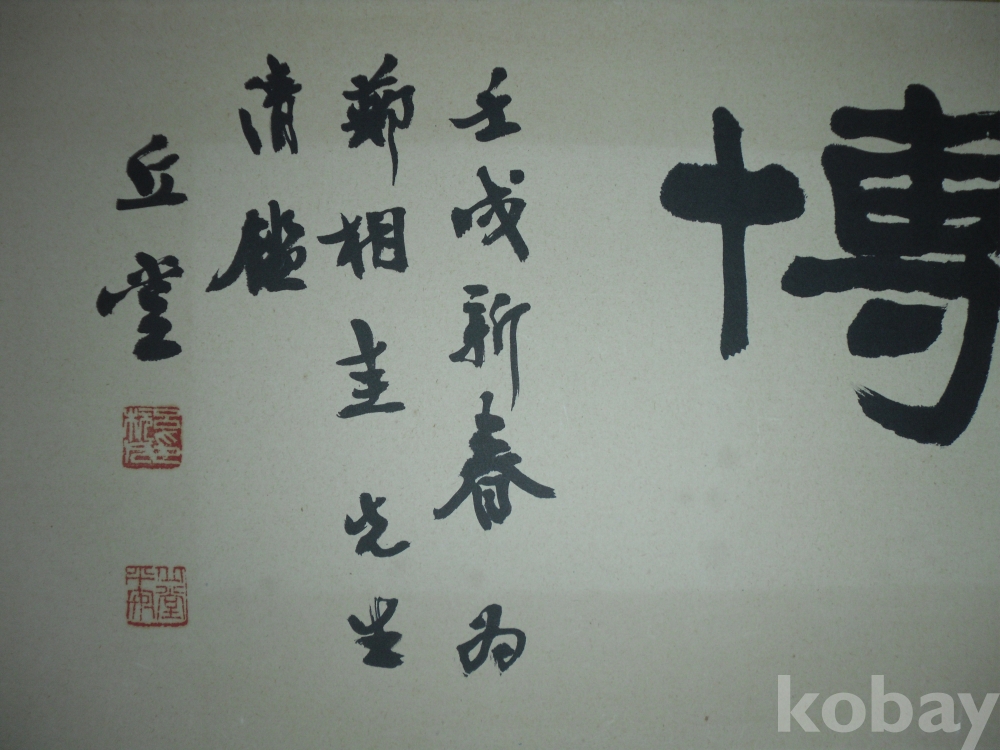 博
壬戌新春為
鄭相圭先生
清鑑
丘堂
kobay